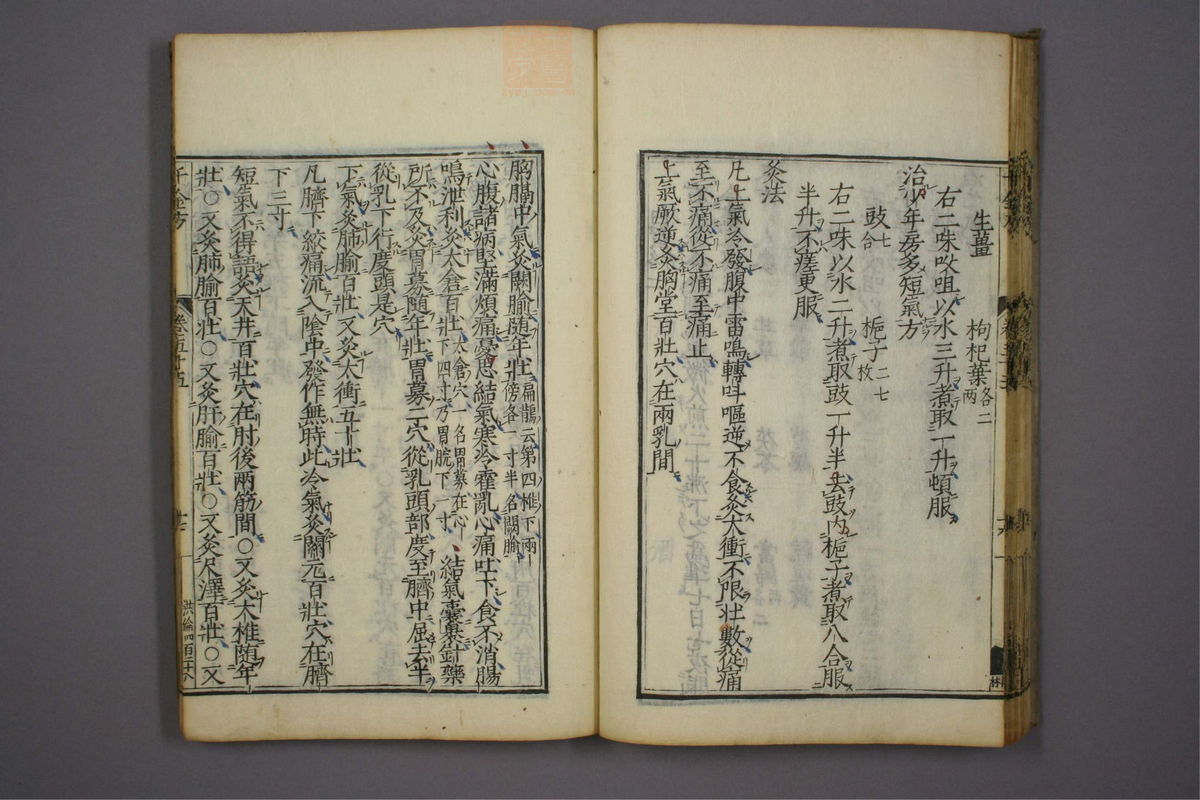 生薑　枸杞葉各二兩
右二味㕮咀以水三升煮取一升頓服
治少年房多短氣方
豉七合　梔子二七枚
右二味以水二升煮取豉一升半去豉內梔子煮取八合服
半升不瘥更服
灸法
凡上氣冷發腹中雷鳴轉叫嘔逆不食灸太衝不限壯數從痛
至不痛從不痛至痛止
上氣厥逆灸胸堂百壯穴在兩乳間
胸膈中氣灸闕腧隨年壯扁鵲云第四椎下兩傍各一寸半名闕腧
心腹諸病堅滿煩痛憂思結氣寒冷霍亂心痛吐下食不消腸
鳴泄利灸太倉百壯太倉穴一名胃募在心下四寸乃胃脘下一寸　結氣囊裹針藥
所不及灸胃募隨年壯胃募二穴從乳頭部度至臍中屈去半
從乳下行度頭是穴
下氣灸肺腧百壯又灸太衝五十壯
凡臍下絞痛流入陰中發作無時此冷氣灸關元百壯穴在臍
下三寸
短氣不得語灸天井百壯穴在肘後兩筋間○又灸大椎隨年
壯○又灸肺腧百壯○又灸肝腧百壯○又灸尺澤百壯○又
千金方　卷五十五
洪倫四百二十八